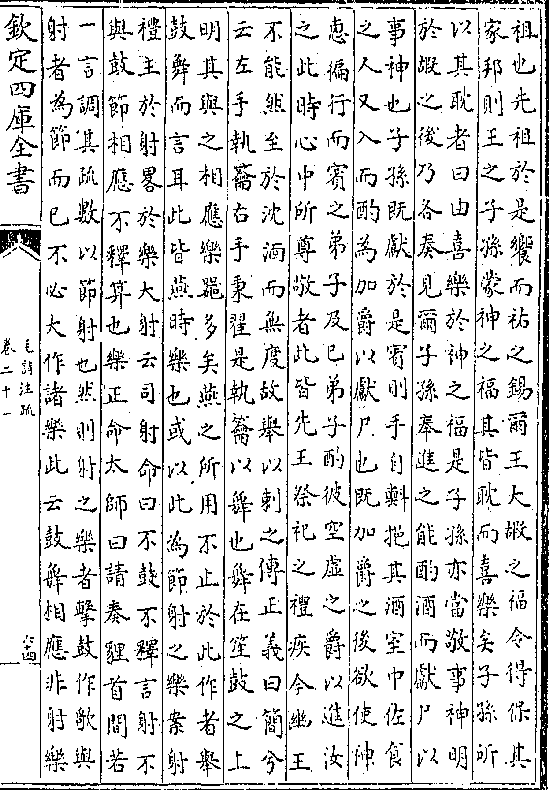 祖也先祖於是饗而祜之錫爾王大嘏之福令得保其
家邦則王之子孫蒙神之福其皆耽而喜樂矣子孫所
以其耽者曰由喜樂於神之福是子孫亦當敬事神明
於嘏之後乃各奏見爾子孫奉進之能酌酒而獻尸以
事神也子孫既獻於是賓則手自㪺挹其酒室中佐食
之人又入而酌為加爵以獻尸也既加爵之後欲使神
惠徧行而賓之弟子及已弟子酌彼空虛之爵以進汝
之此時心中所尊敬者此皆先王祭祀之禮疾今幽王
不能然至於沈湎而無度故舉以刺之傳正義曰簡兮
云左手執籥右手秉翟是執籥以舞也舞在笙鼓之上
明其與之相應樂器多矣燕之所用不止於此作者舉
鼓舞而言耳此皆燕時樂也或以此為節射之樂案射
禮主於射畧於樂大射云司射命曰不鼓不釋言射不
與鼓節相應不釋算也樂正命太師曰請奏貍首間若
一言調其疏數以節射也然則射之樂者擊鼓作歌與
射者為節而已不必大作諸樂此云鼓舞相應非射樂
欽定四庫全書
毛詩注疏
卷二十一
六十四